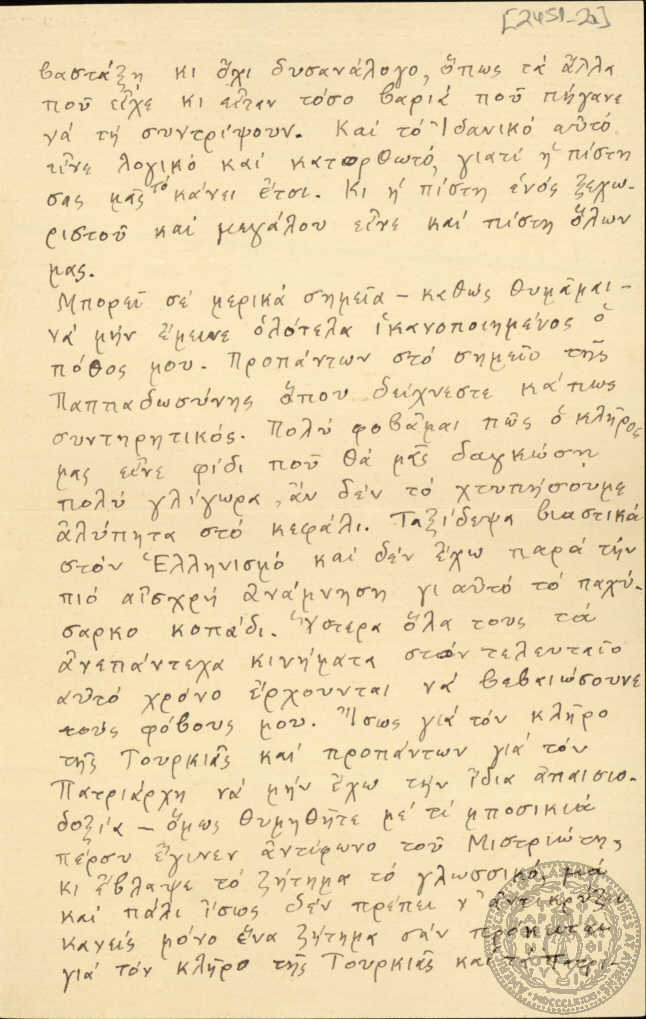 [2451-2a]
βαστάξη κι ὄχι δυσανάλογο, ὅπως τά ἄλλα
ποῦ εἶχε κι εἶταν τόσο βαριά ποῦ πήγανε
νά τή συντρίψουν. Καί τό Ἰδανικό αὐτό
εἶνε λογικό καί κατορθωτό, γιατί ἡ πίστη
σας μᾶς τό κάνει ἔτσι. Κι ἡ πίστη ἑνός ξεχω-
ριστοῦ καί μεγάλου εἶνε καί πίστη ὅλων
μας.
Μπορεῖ σέ μερικά σημεῖα – καθώς θυμᾶμαι –
νά μήν ἔμεινε ὁλότελα ἱκανοποιημένος ὁ
πόθος μου. Προπάντων στό σημεῖο τῆς
Παππαδωσύνης ὅπου δείχνεστε κάπως
συντηρητικός. Πολύ φοβᾶμαι πῶς ὁ κλῆρος
μας εἶνε φίδι ποῦ θά μᾶς δαγκώση
πολύ γλίγωρα, ἄν δέν τό χτυπήσουμε
ἀλύπητα στό κεφάλι. Ταξίδεψα βιαστικά
στόν Ἑλληνισμό καί δέν ἔχω παρά τήν
πιό αἰσχρή ἀνάμνηση γι αὐτό τό παχύ-
σαρκο κοπάδι. Ὕστερα ὅλα τους τά
ἀνεπάντεχα κινήματα στόν τελευταῖο
αὐτό χρόνο ἔρχουνται νά βεβαιώσουνε
τούς φόβους μου. Ἴσως γιά τόν κλῆρο
τῆς Τουρκιᾶς καί προπάντων γιά τόν
Πατριάρχη νά μήν ἔχω τήν ἴδια ἀπαισιο-
δοξία – ὅμως θυμηθῆτε μέ τί μποσικιά
πέρσυ ἔγινεν ἀντίφωνο τοῦ Μιστριώτη,
κι ἔβλαψε τό ζήτημα τό γλωσσικό, μά
καί πάλι ἴσως δέν πρέπει ν' ἀντικρύζη
κανείς μόνο ἕνα ζήτημα σάν πρόκειται
γιά τόν κλῆρο τῆς Τουρκιᾶς καί τό Πατρι-